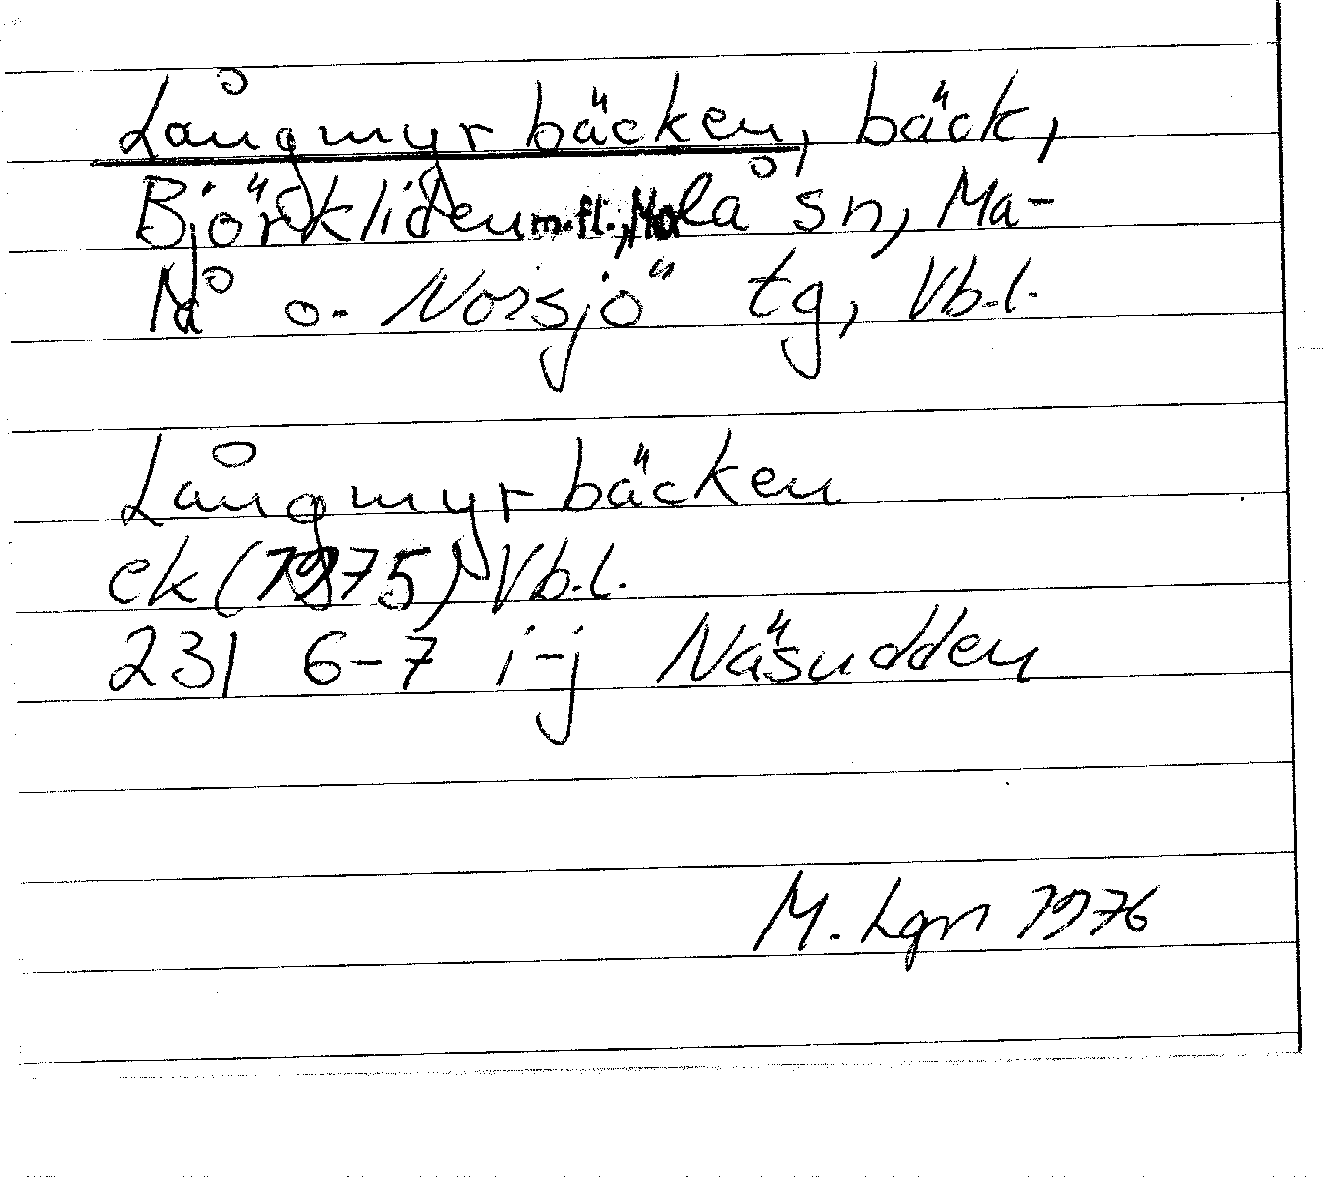 Långmyrbäcken, bäck,
Björkliden m.fl., Malå sn, Ma-
lå o. Norsjö tg, Vb.l.
Långmyrbäcken
ek (1975) Vb.l.
23I 6-7 i-j Näsudden
M. Lgn 1976